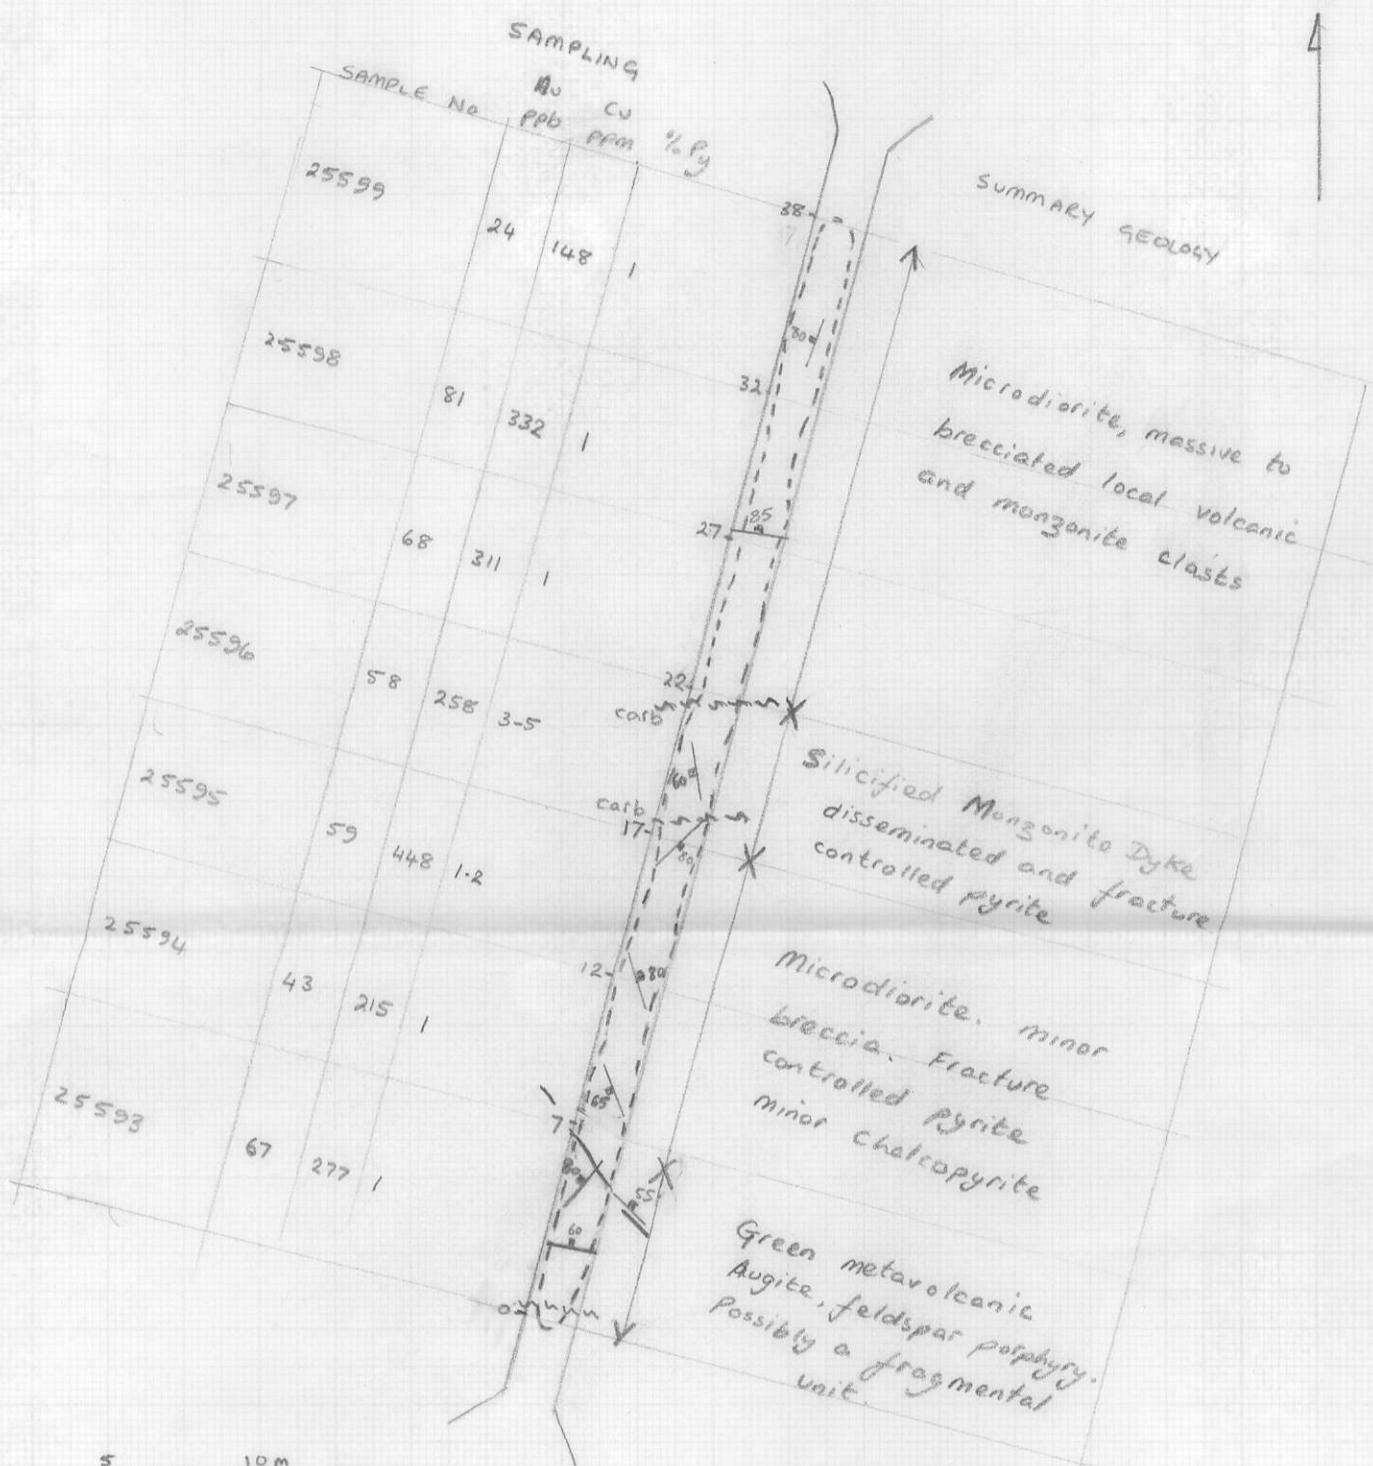 SAMPLING
SAMPLE No Au ppb Cu ppm % Py
25599 24 148 1
25598 81 332 1
25597 68 311 1
25596 58 258 3-5
25595 59 448 1-2
25594 43 215 1
25593 67 277 1
38
80
32
85
27
22
carb
60
carb
17
80
12
80
65
7
80
55
60
0
SUMMARY GEOLOGY
Microdiorite, massive to
brecciated local volcanic
and monzonite clasts
Silicified Monzonite Dyke
disseminated and fracture
controlled pyrite
Microdiorite. minor
breccia. Fracture
controlled pyrite
minor Chalcopyrite
Green metavolcanic
Augite, feldspar porphyry.
Possibly a fragmental
unit.
5 10 m